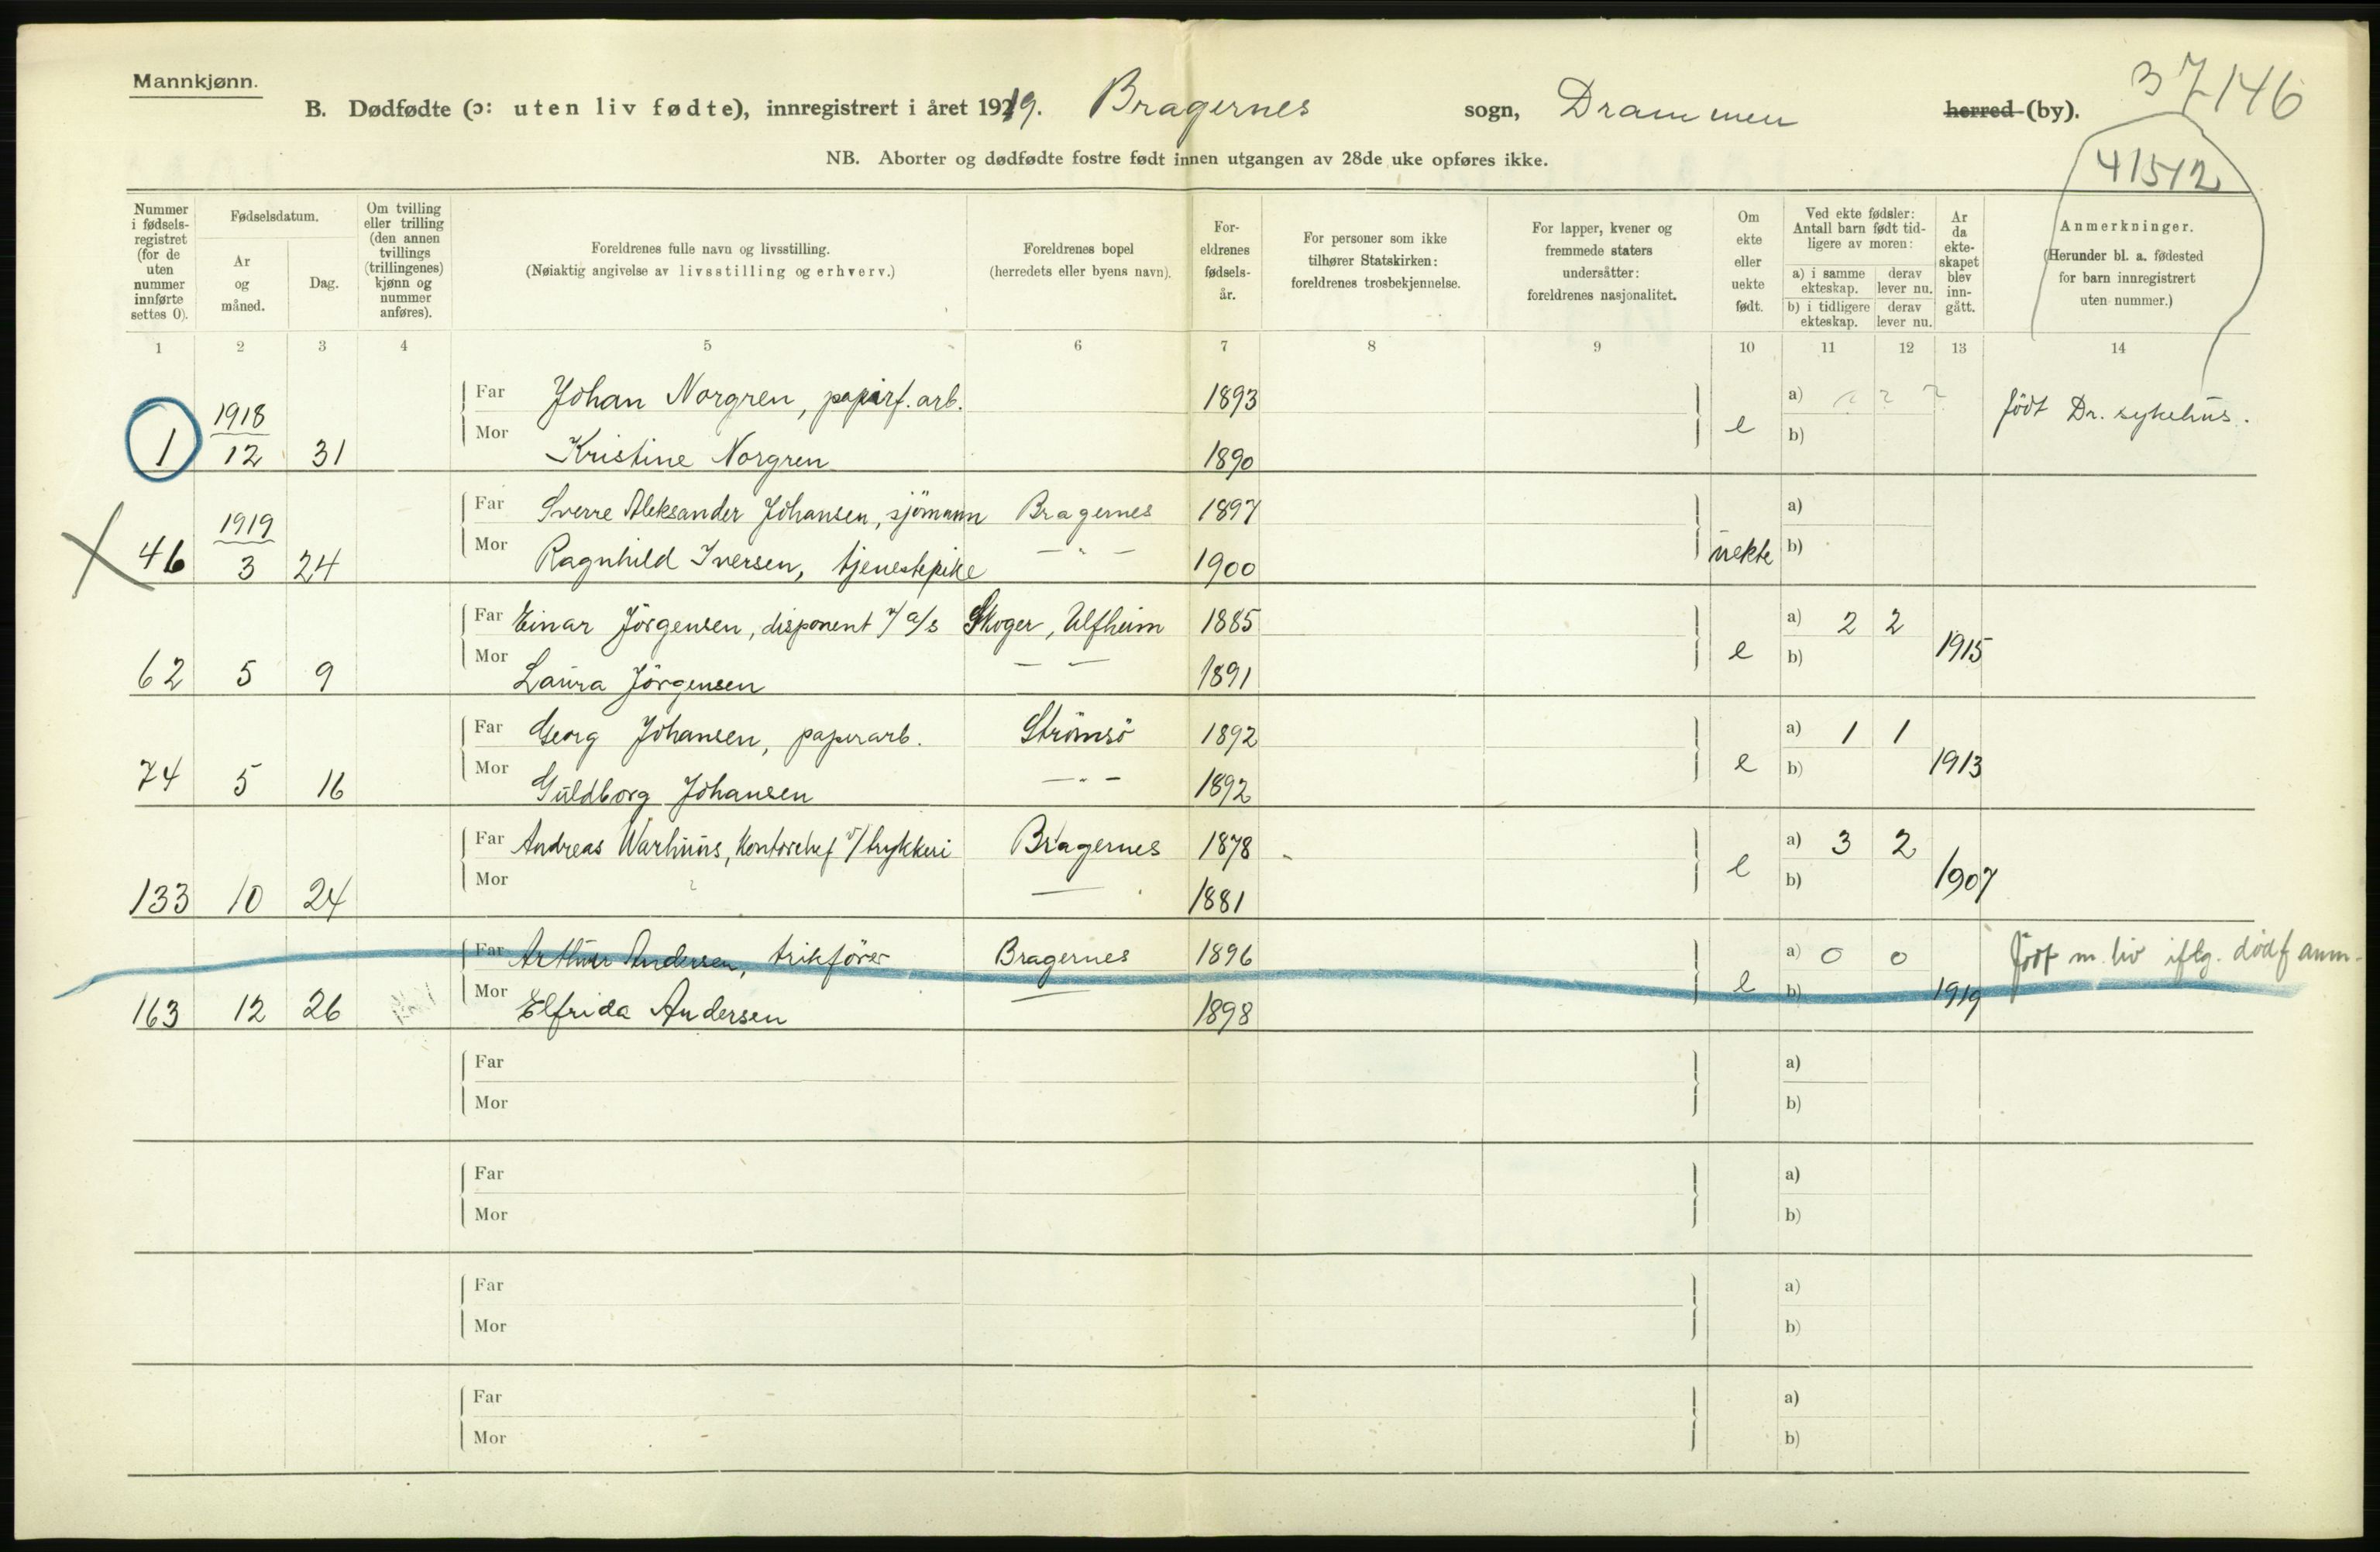 Mannkjønn.
37146
B. Dødfødte (ɔ: uten liv fødte), innregistrert i året 1919. Bragernes sogn, Drammen herred (by).
41512
NB. Aborter og dødfødte fostre født innen utgangen av 28de uke opføres ikke.
Nummer i fødsels-registret (for de uten nummer innførte settes 0).
Fødselsdatum.
Ar og måned.
Dag.
Om tvilling eller trilling (den annen tvillings (trillingenes) kjønn og nummer anføres).
Foreldrenes fulle navn og livsstilling.
(Nøiaktig angivelse av livsstilling og erhverv.)
Foreldrenes bopel
(herredets eller byens navn).
For-eldrenes fødsels-år.
For personer som ikke tilhører Statskirken: foreldrenes trosbekjennelse.
For lapper, kvener og fremmede staters undersåtter: foreldrenes nasjonalitet.
Om ekte eller uekte født.
Ved ekte fødsler: Antall barn født tid-ligere av moren:
a) i samme ekteskap. derav lever nu.
b) i tidligere ekteskap. derav lever nu.
Ar da ekte-skapet blev inn-gått.
Anmerkninger.
(Herunder bl. a. fødested for barn innregistrert uten nummer.)
1 2 3 4 5 6 7 8 9 10 11 12 13 14
Far Johan Norgren, papirf. arb. 1893 a) ? ? ?
1 1918 12 31 e født Dr. sykehus.
Mor Kristine Norgren 1890 b)
Far Sverre Aleksander Johansen, sjömann Bragernes 1897 a)
46 1919 3 24 uekte
Mor Ragnhild Iversen, tjenestepike — " — 1900 b)
Far Einar Jörgensen, disponent v/ a/s Skoger, Ulfheim 1885 a) 2 2
62 5 9 e 1915
Mor Laura Jörgensen — — 1891 b)
Far Georg Johansen, papirarb. Strömsö 1892 a) 1 1
74 5 16 e 1913
Mor Guldborg Johansen — " — 1892 b)
Far Andreas Warhuus, Kontorchef v/ trykkeri Bragernes 1878 a) 3 2
133 10 24 e 1907
Mor ? — 1881 b)
Far Arthur Andersen, trikförer Bragernes 1896 a) 0 0 Født m. liv iflg. dødf anm.
163 12 26 e 1919
Mor Elfrida Andersen — 1898 b)
Far a)
Mor b)
Far a)
Mor b)
Far a)
Mor b)
Far a)
Mor b)